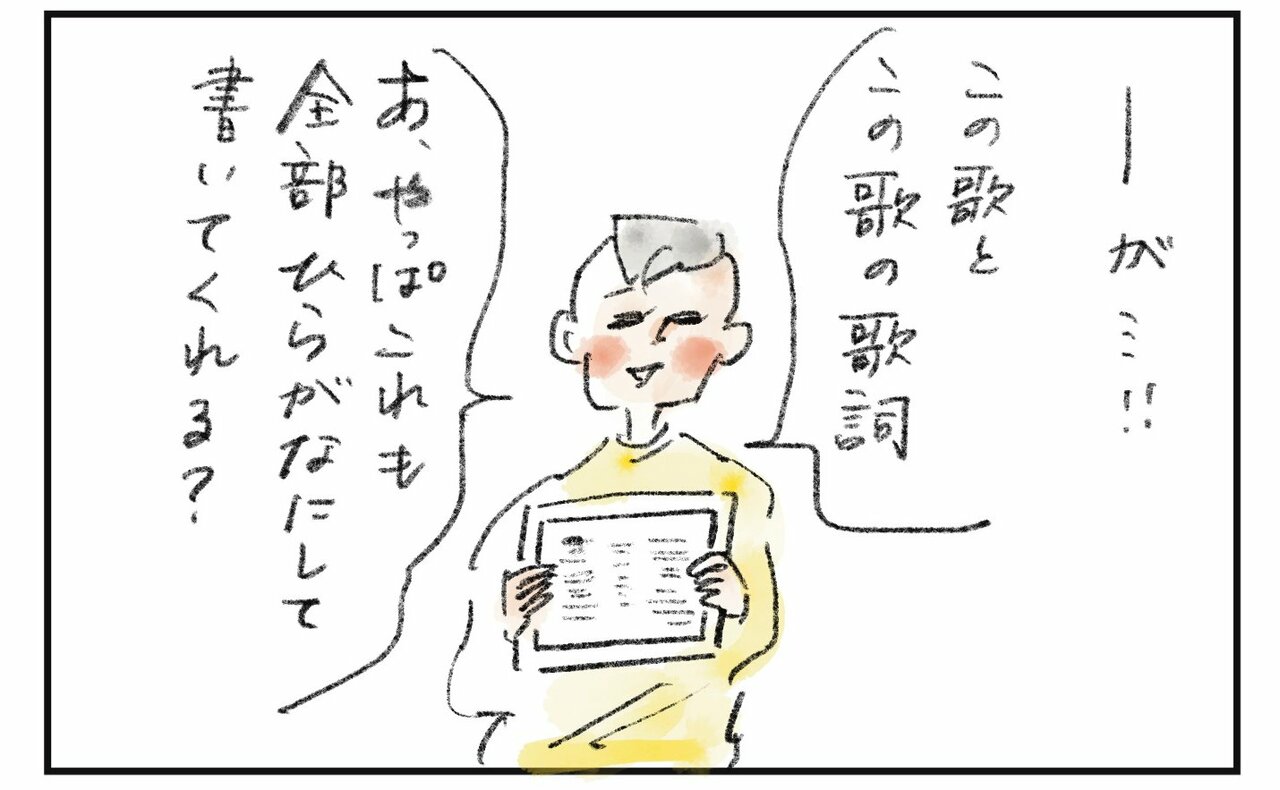 ——が…!!
この歌と
この歌の歌詞
あ、やっぱこれも
全部ひらがなにして
書いてくれる?